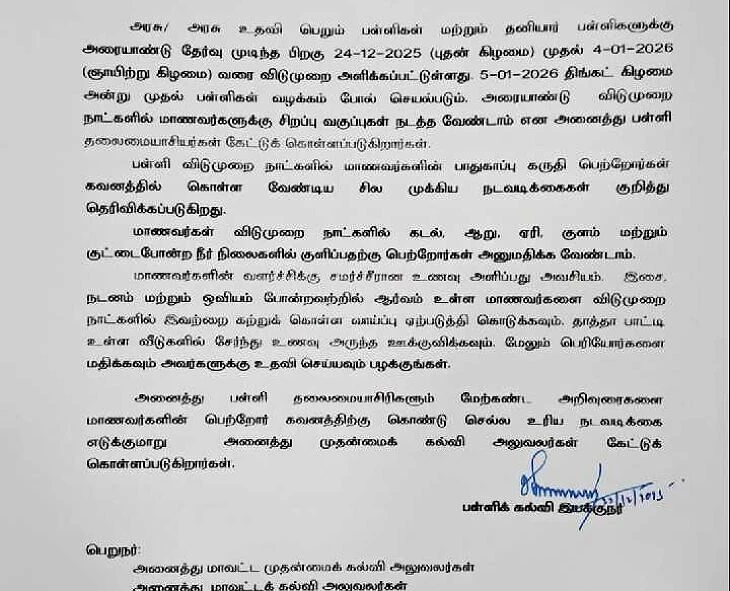 அரசு/ அரசு உதவி பெறும் பள்ளிகள் மற்றும் தனியார் பள்ளிகளுக்கு
அரையாண்டு தேர்வு முடிந்த பிறகு 24-12-2025 (புதன் கிழமை) முதல் 4-01-2026
(ஞாயிற்று கிழமை) வரை விடுமுறை அளிக்கப்பட்டுள்ளது. 5-01-2026 திங்கட் கிழமை
அன்று முதல் பள்ளிகள் வழக்கம் போல் செயல்படும். அரையாண்டு விடுமுறை
நாட்களில் மாணவர்களுக்கு சிறப்பு வகுப்புகள் நடத்த வேண்டாம் என அனைத்து பள்ளி
தலைமையாசியர்கள் கேட்டுக் கொள்ளப்படுகிறார்கள்.
பள்ளி விடுமுறை நாட்களில் மாணவர்களின் பாதுகாப்பு கருதி பெற்றோர்கள்
கவனத்தில் கொள்ள வேண்டிய சில முக்கிய நடவடிக்கைகள் குறித்து
தெரிவிக்கப்படுகிறது.
மாணவர்கள் விடுமுறை நாட்களில் கடல், ஆறு, ஏரி, குளம் மற்றும்
குட்டைபோன்ற நீர் நிலைகளில் குளிப்பதற்கு பெற்றோர்கள் அனுமதிக்க வேண்டாம்.
மாணவர்களின் வளர்ச்சிக்கு சமர்ச்சீரான உணவு அளிப்பது அவசியம். இசை,
நடனம் மற்றும் ஓவியம் போன்றவற்றில் ஆர்வம் உள்ள மாணவர்களை விடுமுறை
நாட்களில் இவற்றை கற்றுக் கொள்ள வாய்ப்பு ஏற்படுத்தி கொடுக்கவும். தாத்தா பாட்டி
உள்ள வீடுகளில் சேர்ந்து உணவு அருந்த ஊக்குவிக்கவும். மேலும் பெரியோர்களை
மதிக்கவும் அவர்களுக்கு உதவி செய்யவும் பழக்குங்கள்.
அனைத்து பள்ளி தலைமையாசிரிகளும் மேற்கண்ட அறிவுரைகளை
மாணவர்களின் பெற்றோர் கவனத்திற்கு கொண்டு செல்ல உரிய நடவடிக்கை
எடுக்குமாறு அனைத்து முதன்மைக் கல்வி அலுவலர்கள் கேட்டுக்
கொள்ளப்படுகிறார்கள்.
பள்ளிக் கல்வி இயக்குநர்
பெறுநர்:
அனைத்து மாவட்ட முதன்மைக் கல்வி அலுவலர்கள்
அனைத்து மாவட்டக் கல்வி அலுவலர்கள்